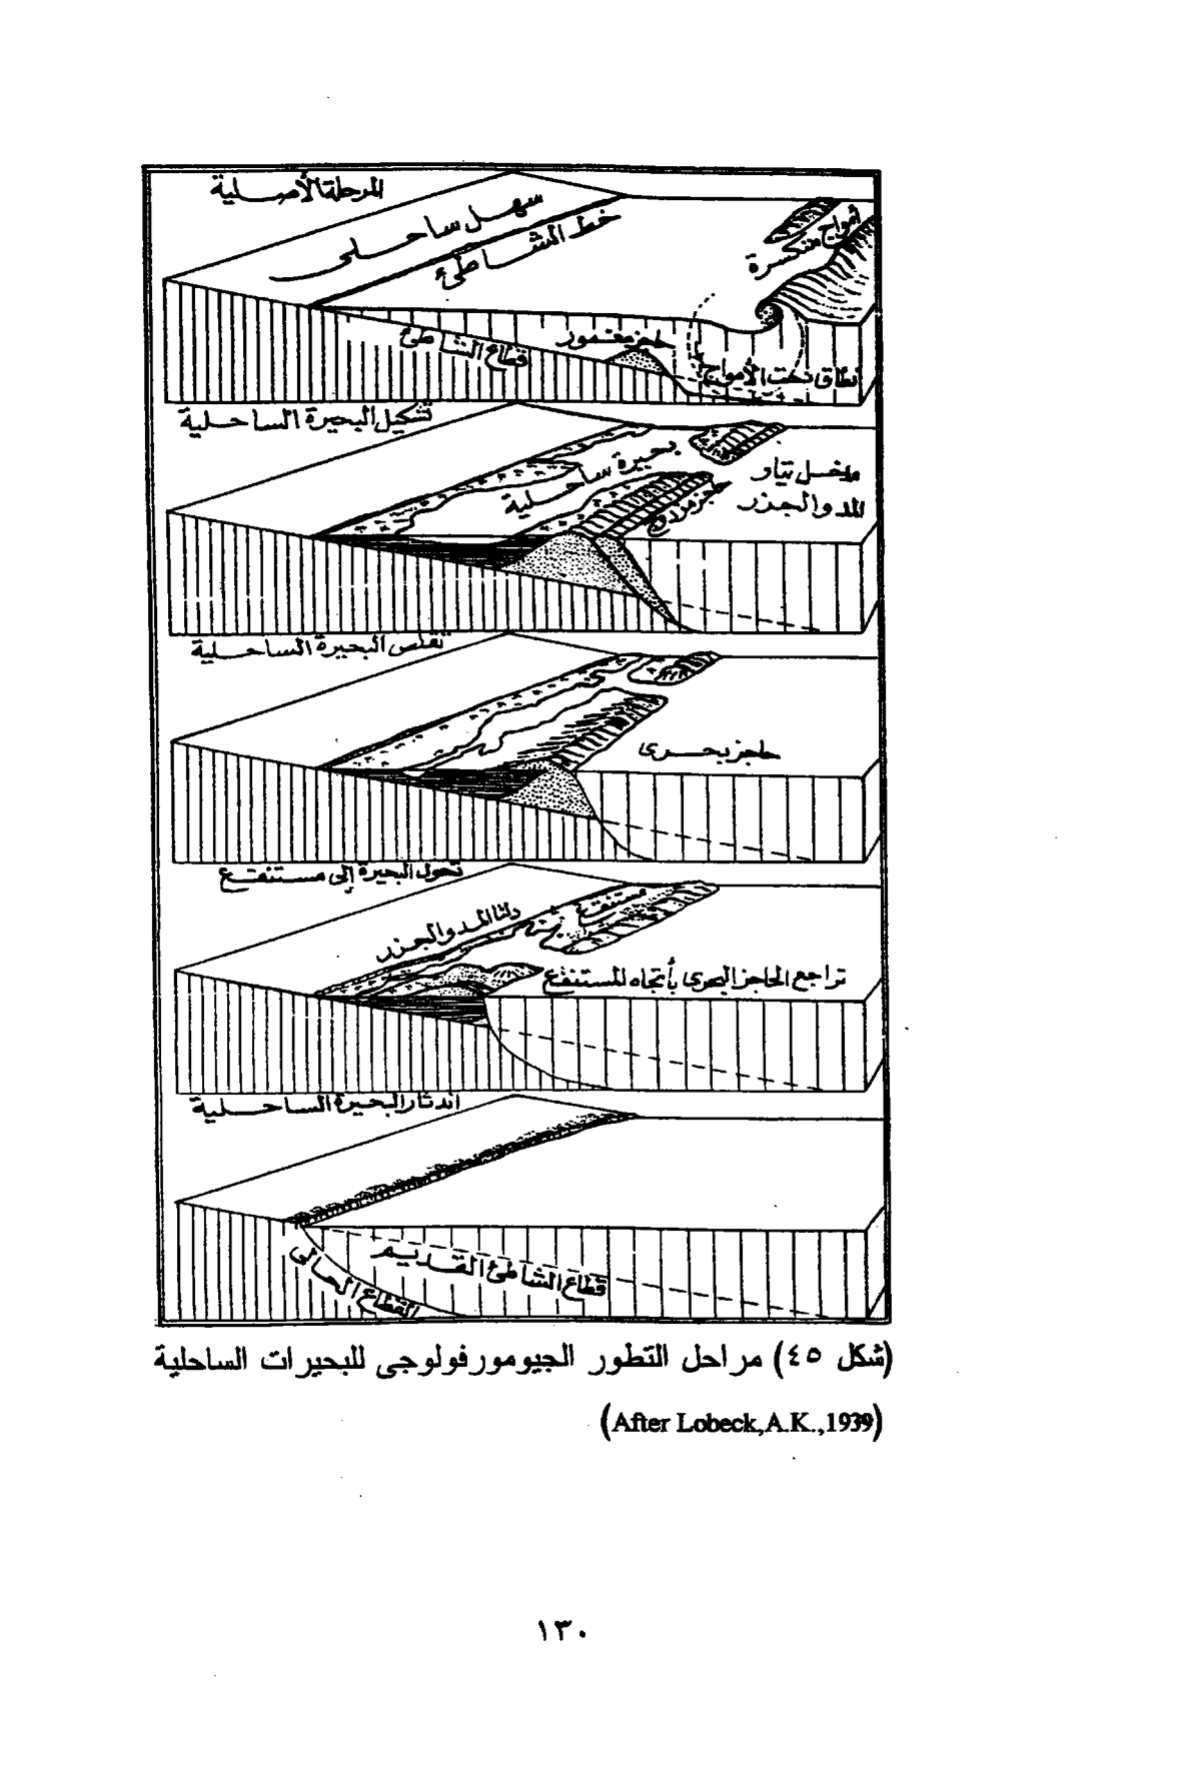 المرحلة الأصلية
سهل ساحلى
خط الشاطئ
أمواج متكسرة
قطاع الشاطئ
حاجز مغمور
نطاق نحت الأمواج
تشكيل البحيرة الساحلية
بحيرة ساحلية
مدخل تيار
المد والجزر
حاجز مزدوج
تقلص البحيرة الساحلية
حاجز بحرى
تحول البحيرة إلى مستنقع
دلتا المد والجزر
مستنقع
تراجع الحاجز البحرى بأتجاه المستنقع
اندثار البحيرة الساحلية
قطاع الشاطئ القديم
القطاع الحالى
(شكل ٤٥) مراحل التطور الجيومورفولوجى للبحيرات الساحلية
(After Lobeck,A.K.,1939)
١٣٠